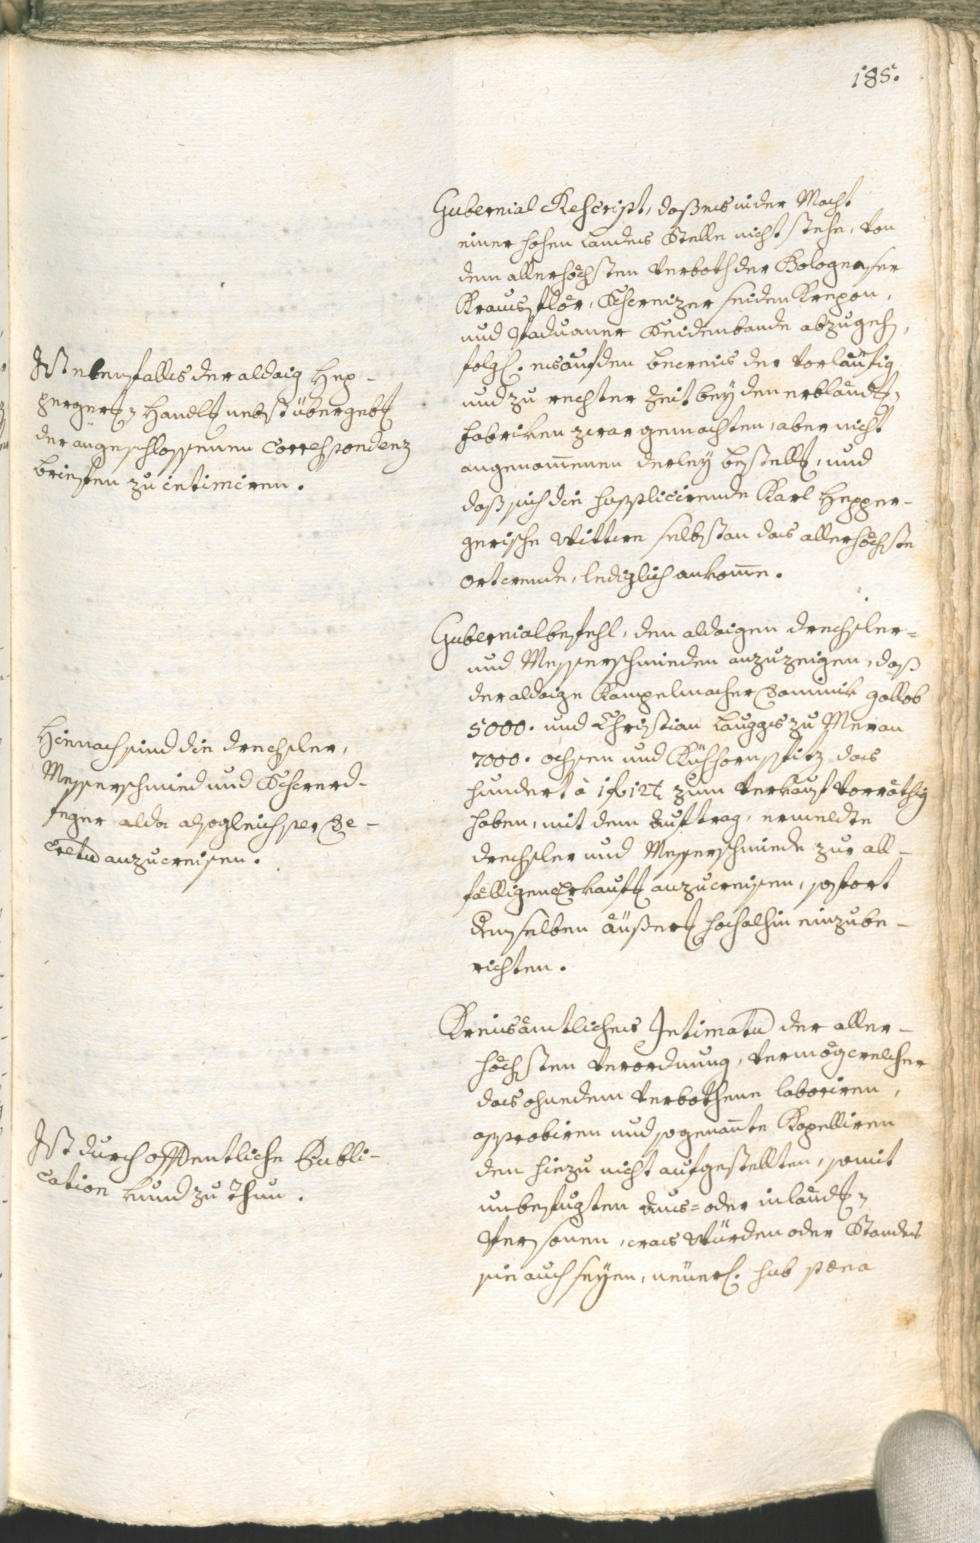 185.
Gubernial Rescript, daß es in der Macht
einer hohen Landes Stelle nicht stehe, von
dem allerhöchsten Verboth der Bologneser
Kraus flör, Schweizer seiden Krepon,
und Paduaner Seidenbande abzugehen,
folgl. es auf den beweis der vorläufig
und zu rechter Zeit bey den erbländ.
fabriken zwar gemachten, aber nicht
angenommenen derley bestell, und
daß sich die supplicirende Karl Hepper-
gerische Wittwe selbst an das allerhöchste
ort wende, lediglich ankomme.
Ist ebenfalls der aldaig Hep-
pergert Handl nebst übergebt
der angeschlossenen Correspondenz
briefen zu intimiren.
Gubernialbefehl, den aldaigen drechsler-
und Messerschmieden anzuzeigen, daß
der aldaige Kampelmacher Dominik Gallob
5000. und Christian Lauggas zu Meran
7000. ochsen und Kühhornspitz das
hundert à 1f 12 zum Verkauf vorräthig
haben, mit dem auftrag, ermeldte
drechsler und Messerschmiede zur all-
fälligen Erkauf anzuweisen, sofort
denselben äußert hochalhin einzube-
richten.
Hienach sind die drechsler,
Messerschmied und Schwerd-
feger alda alsogleich per De-
cretu anzuweisen.
Kreisämtliches Intimatu der aller-
höchsten Verordnung, vermög welcher
das ohnedem verbothene laboriren,
approbiren und sogenannte Kapelliren
den hiezu nicht aufgestellten, somit
unbefugten aus- oder inländ
Personen, was Würden oder Standes
sie auch seyen, neüerl. sub poena
Ist durch offentliche Publi-
cation kund zu thun.